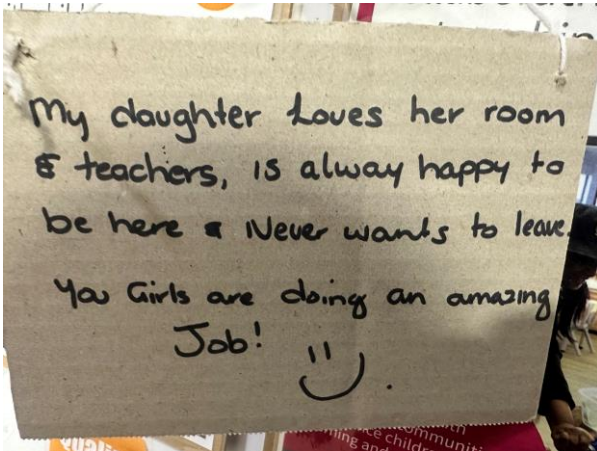 My daughter Loves her room
& teachers, is alway happy to
be here & Never wants to leave.
You Girls are doing an amazing
Job!
ommuniti
ce childr
ning and